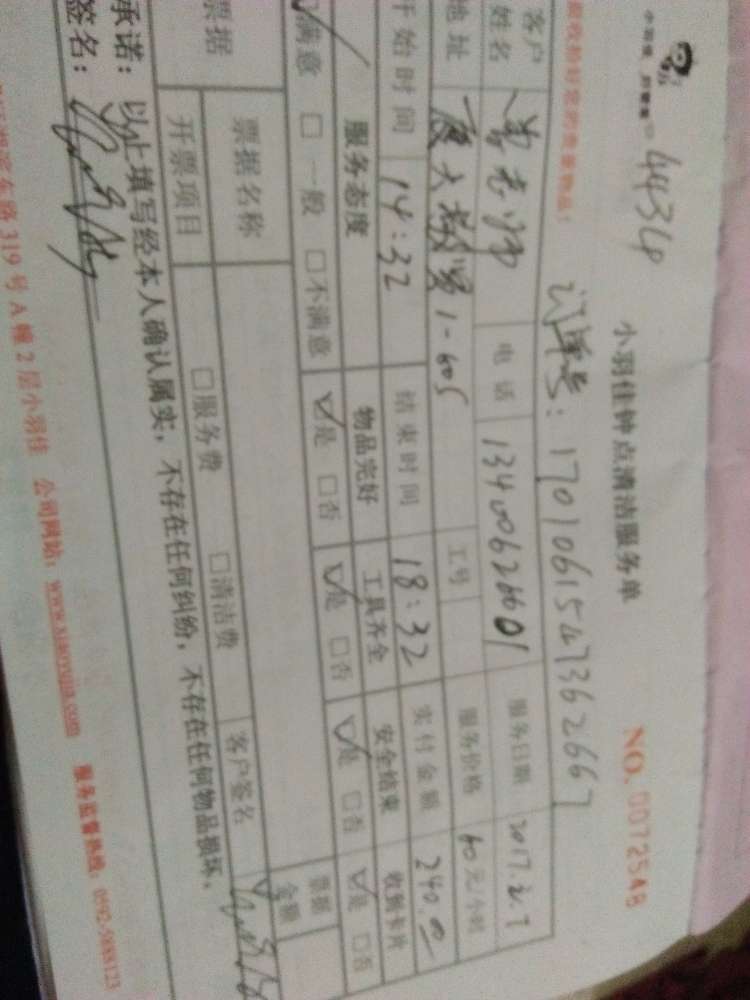 4434
小羽佳钟点清洁服务单
NO. 0072548
订单号：1701061547362667
客户姓名 电话 13400626601 服务日期 2017.2.7
地址 1-605 工号 服务价格 60元/小时
开始时间 14:32 结束时间 18:32 实付金额 240.00
服务态度 物品完好 工具齐全 安全结束 收到卡片
满意 □一般 □不满意 ☑是 □否 ☑是 □否 ☑是 □否 ☑是 □否
票据 票据名称 客户签名 票据金额
开票项目 □服务费 □清洁费
承诺：以上填写经本人确认属实，不存在任何纠纷，不存在任何物品损坏，
签名：
东路319号A幢2层小羽佳 公司网站：www.xiaoyujia.com 服务监督热线：0592-5888123